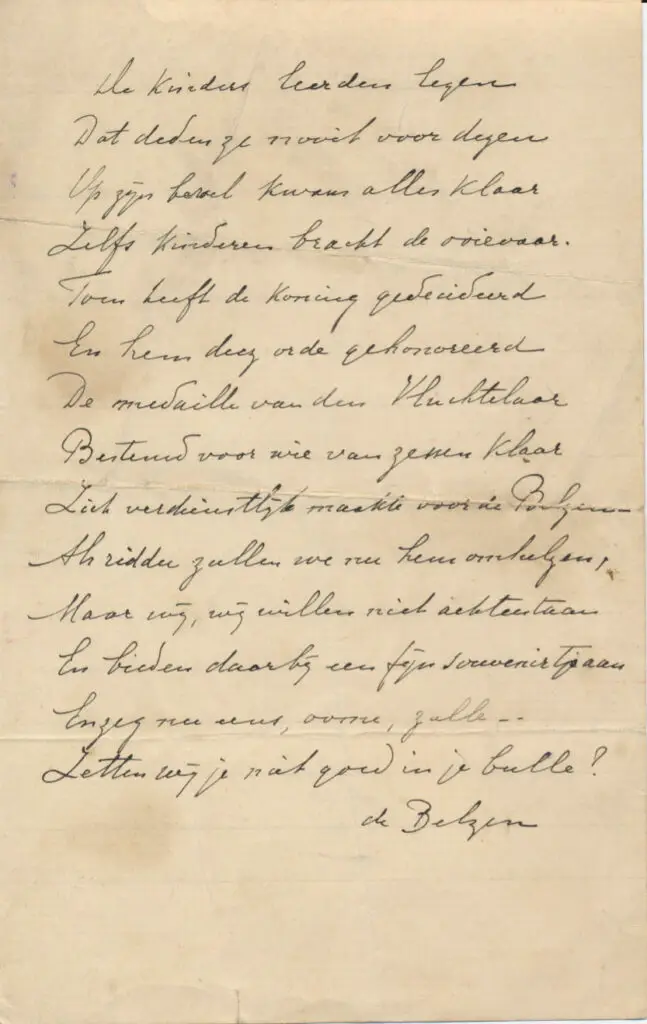 De Kinders leerden legen
Dat deden ze nooit voor degen
Op zijn bevel kwam alles klaar
Zelfs kinderen bracht de ooievaar.
Toen heeft de Koning gedecideerd
En hem deez orde gehonoreerd
De medaille van den Vluchtelaar
Bestemd voor wie van zessen klaar
Zich verdienstlijk maakte voor de Belgen
Als ridder zullen we nu hem omhelzen,
Maar wij, wij willen niet achterstaan
En bieden daarbij een fijn souvenirtje aan
En zeg nu eens, oome, zulle --
Zetten wij je niet goed in je bulle?
de Belgen